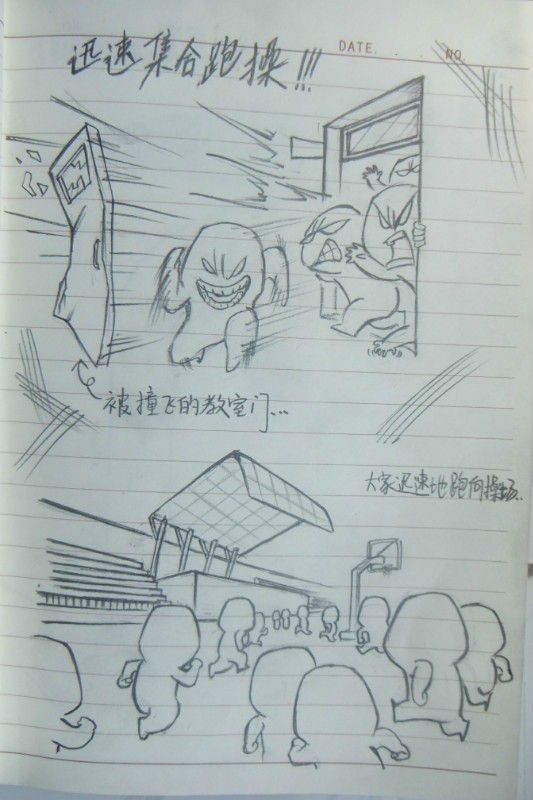 迅速集合跑操!!!
DATE.
NO.
被撞飞的教室门...
大家迅速地跑向操场.